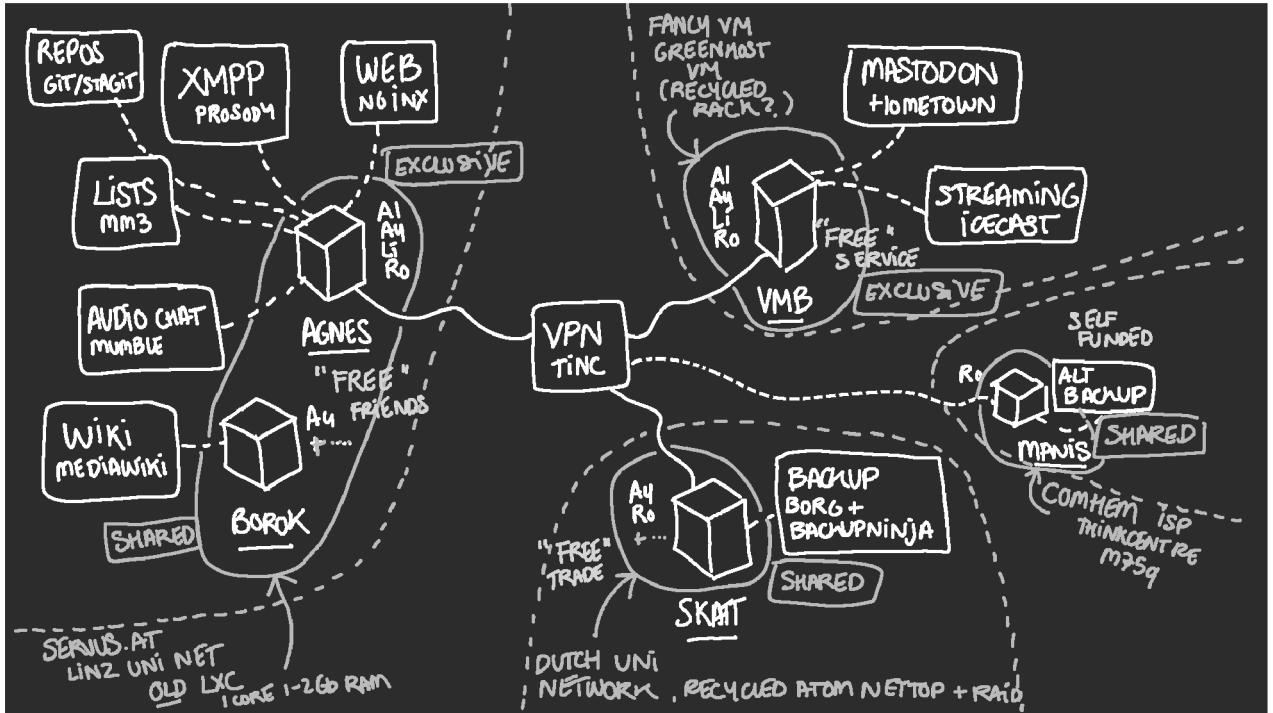 REPOS
GIT/STAGIT
XMPP
PROSODY
WEB
NGINX
EXCLUSIVE
LISTS
MM3
Al
Ay
Li
Ro
AUDIO CHAT
MUMBLE
AGNES
"FREE"
FRIENDS
WIKI
MEDIAWIKI
Ay
+ ....
BOROK
SHARED
SERVUS.AT
LINZ UNI NET
OLD LXC
1 CORE 1-2Gb RAM
VPN
TINC
FANCY VM
GREENHOST
VM
(RECYCLED
RACK?)
MASTODON
+HOMETOWN
Al
Ay
Li
Ro
STREAMING
ICECAST
"FREE"
SERVICE
VMB
EXCLUSIVE
SELF
FUNDED
Ro
ALT
BACKUP
SHARED
MANIS
COMHEM ISP
THINKCENTRE
M75q
Ay
Ro
+ ...
BACKUP
BORG +
BACKUPNINJA
"FREE"
TRADE
SHARED
SKATT
DUTCH UNI
NETWORK. RECYCLED ATOM NETTOP + RAID